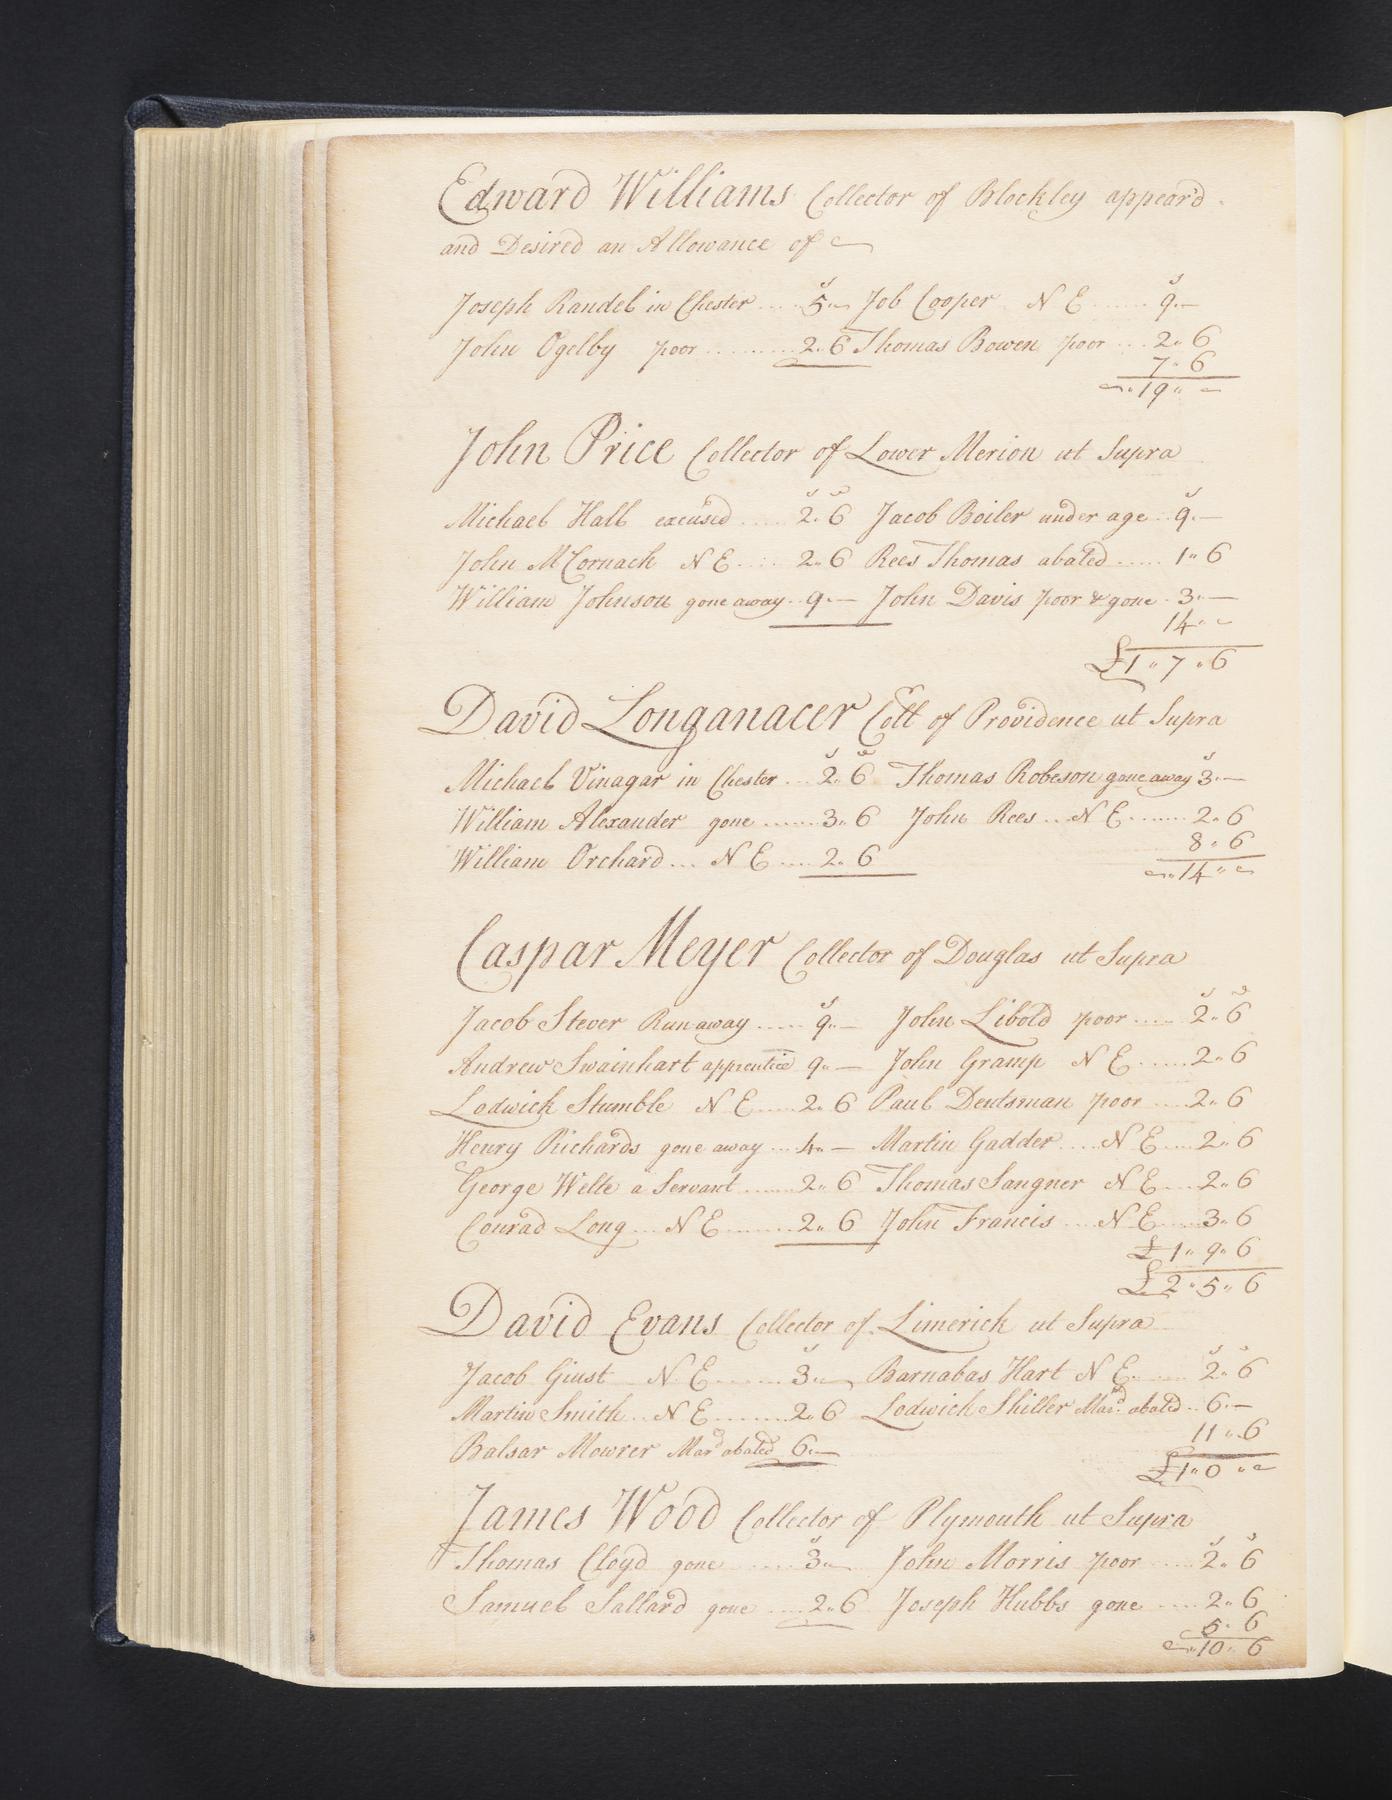 Edward Williams Collector of Blockley appear'd
and Desired an Allowance of
Joseph Randel in Chester .... 5„— Job Cooper N E ...... 9„—
John Ogelby poor ......... 2„6 Thomas Bowen poor ... 2„6
7„6
„19„
John Price Collector of Lower Merion ut Supra
Michael Hall excused ..... 2„6 Jacob Boiler under age .. 9„—
John McCornack N E .... 2„6 Rees Thomas abated ..... 1„6
William Johnson gone away .. 9„— John Davis poor & gone . 3„—
14„
£1„7„6
David Longanacer Coll of Providence ut Supra
Michael Vinagar in Chester ... 2„6 Thomas Robeson gone away 3„—
William Alexander gone ....... 3„6 John Rees ... N E ....... 2„6
8„6
William Orchard ... N E .... 2„6
„14„
Caspar Meyer Collector of Douglas ut Supra
Jacob Stever Runaway ..... 9„— John Libold poor ..... 2„6
Andrew Swainhart apprentice 9„— John Gramp N E ..... 2„6
Lodwick Stumble N E ..... 2„6 Paul Deutsman poor .... 2„6
Henry Richards gone away ... 4„— Martin Gadder .... N E .... 2„6
George Welte a Servant ....... 2„6 Thomas Sangner N E .... 2„6
Conrad Long ... N E ........ 2„6 John Francis .... N E ..... 3„6
£1„9„6
£2„5„6
David Evans Collector of Limerick ut Supra
Jacob Giust N E ....... 3„— Barnabas Hart N E ...... 2„6
Martin Smith .. N E ........ 2„6 Lodwick Shiller Mard. abated .. 6„—
11„6
Balsar Mowrer Mard abated 6„—
£1„0„
James Wood Collector of Plymouth ut Supra
Thomas Cloyd gone ..... 3„— John Morris poor ..... 2„6
Samuel Sallard gone .... 2„6 Joseph Hubbs gone .... 2„6
5„6
„10„6